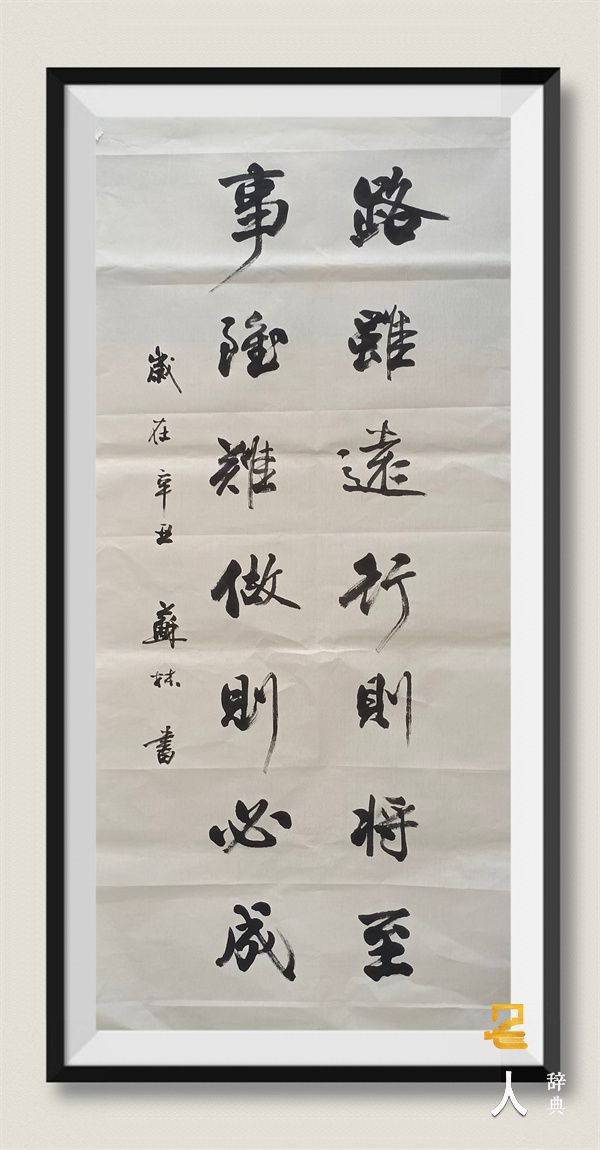 路雖遠行則将至
事雖難做則必成
歲在辛丑 蘇林書
名人
辞典